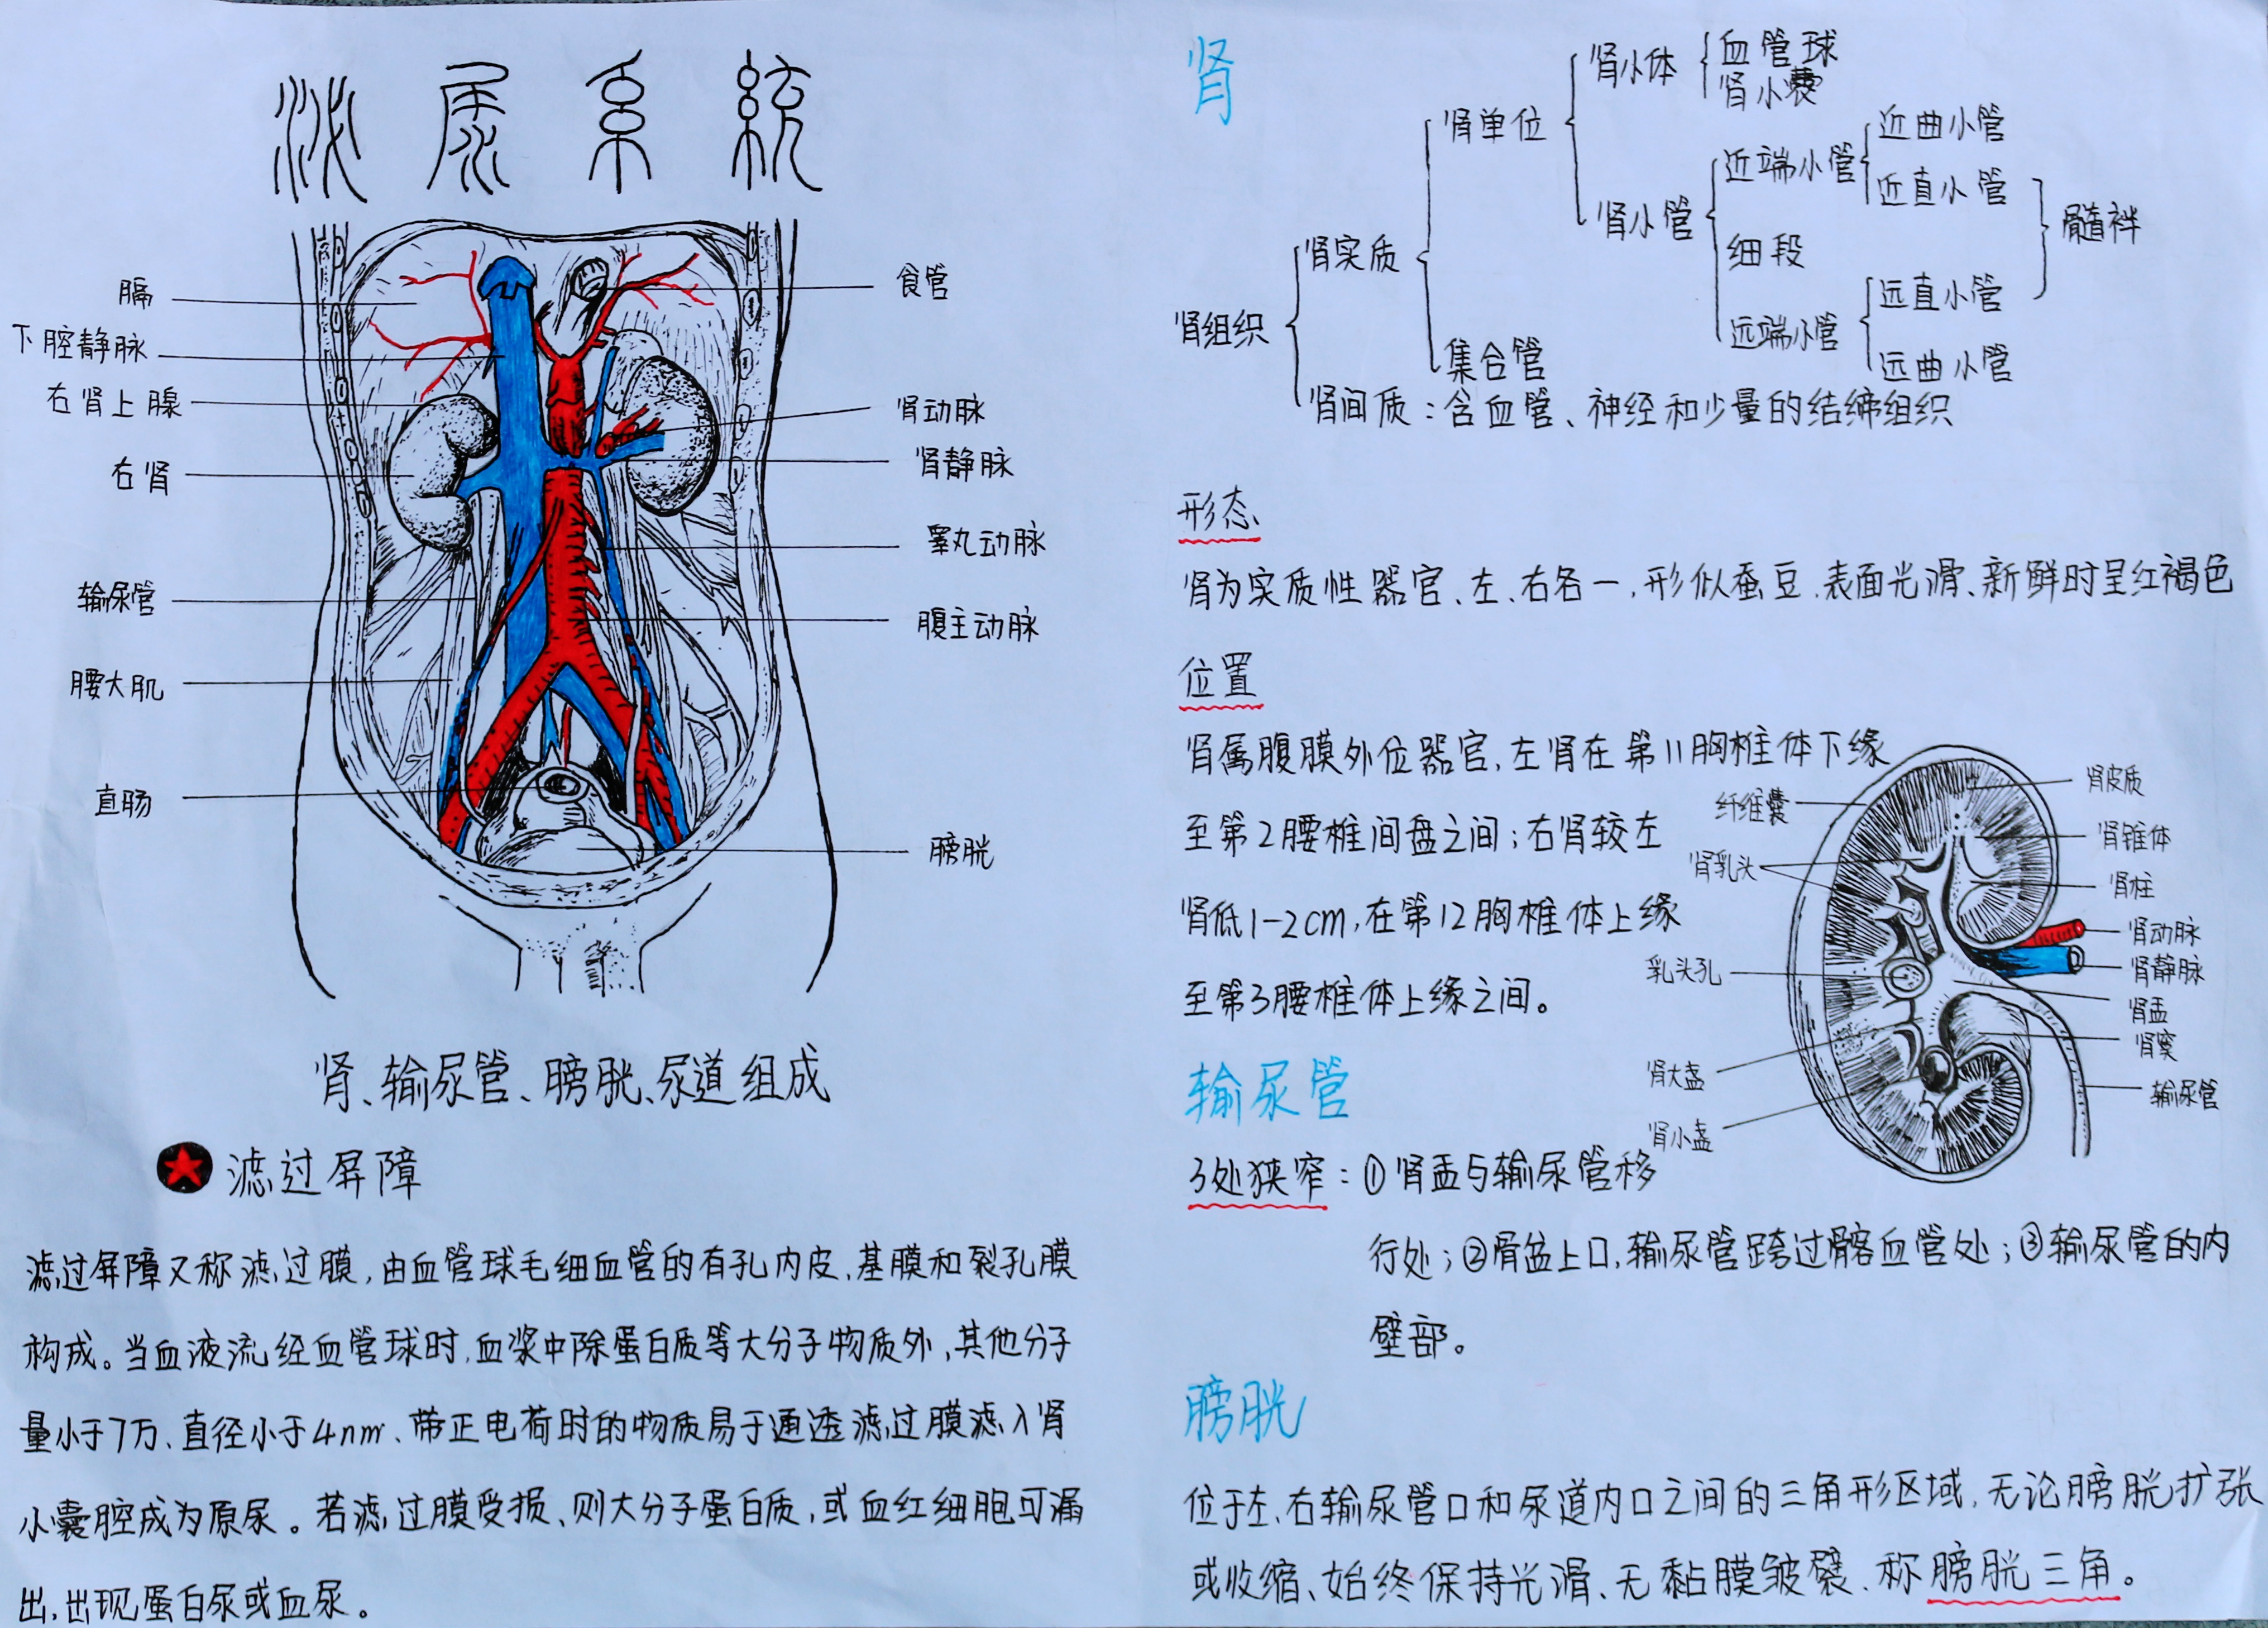 泌尿系統
膈
下腔静脉
右肾上腺
右肾
输尿管
腰大肌
直肠
食管
肾动脉
肾静脉
睾丸动脉
腹主动脉
膀胱
肾、输尿管、膀胱、尿道组成
滤过屏障
滤过屏障又称滤过膜,由血管球毛细血管的有孔内皮、基膜和裂孔膜
构成。当血液流经血管球时,血浆中除蛋白质等大分子物质外,其他分子
量小于7万、直径小于4nm、带正电荷时的物质易于通透滤过膜滤入肾
小囊腔成为原尿。若滤过膜受损、则大分子蛋白质,或血红细胞可漏
出,出现蛋白尿或血尿。
肾
肾组织
肾实质
肾单位
肾小体
血管球
肾小囊
肾小管
近端小管
近曲小管
近直小管
细段
远端小管
远直小管
远曲小管
髓袢
集合管
肾间质:含血管、神经和少量的结缔组织
形态
肾为实质性器官、左、右各一,形似蚕豆,表面光滑、新鲜时呈红褐色
位置
肾属腹膜外位器官,左肾在第11胸椎体下缘
至第2腰椎间盘之间;右肾较左
肾低1-2cm,在第12胸椎体上缘
至第3腰椎体上缘之间。
纤维囊
肾乳头
乳头孔
肾大盏
肾小盏
肾皮质
肾锥体
肾柱
肾动脉
肾静脉
肾盂
肾窦
输尿管
输尿管
3处狭窄:①肾盂与输尿管移
行处;②骨盆上口,输尿管跨过髂血管处;③输尿管的内
壁部。
膀胱
位于左、右输尿管口和尿道内口之间的三角形区域,无论膀胱扩张
或收缩、始终保持光滑、无黏膜皱襞、称膀胱三角。